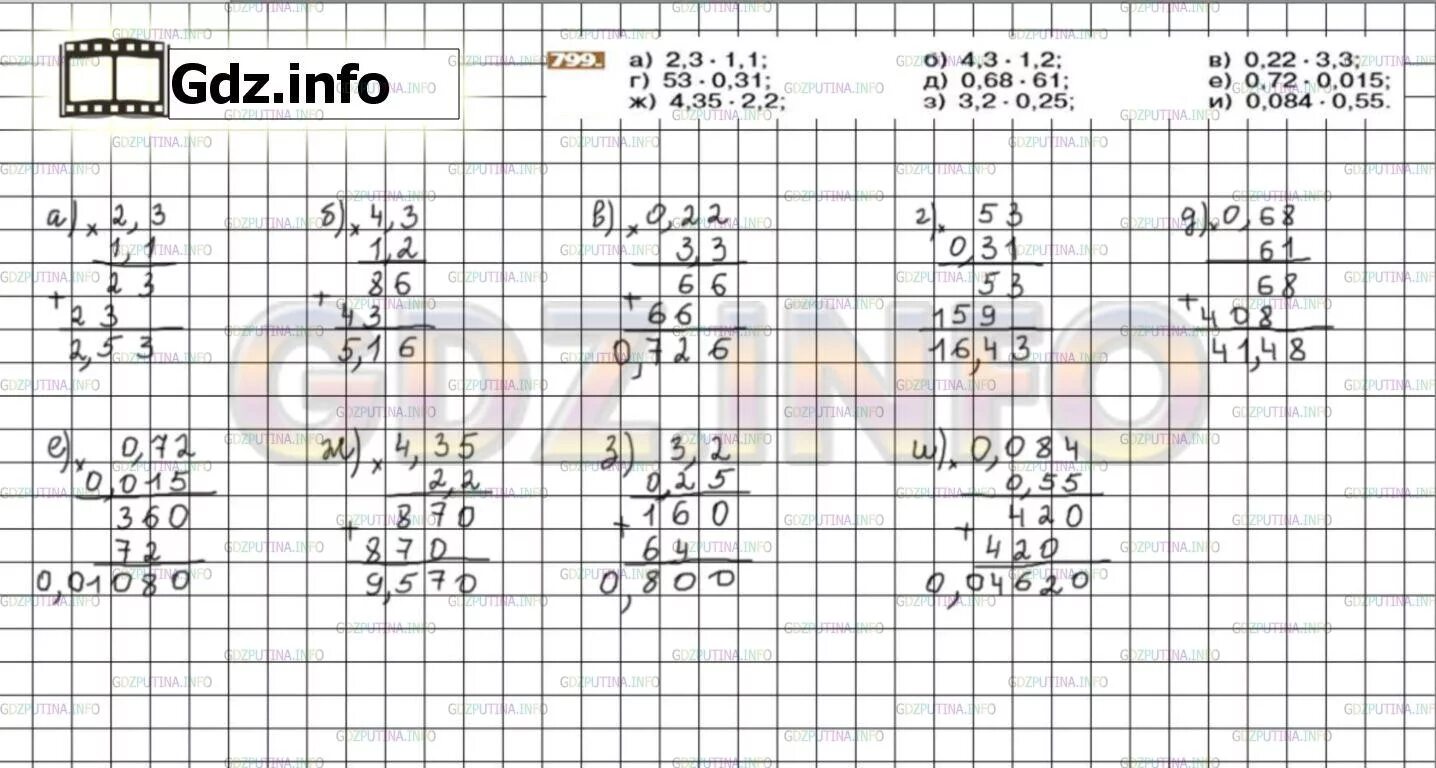 Gdz.info
799. а) 2,3 · 1,1; б) 4,3 · 1,2; в) 0,22 · 3,3;
г) 53 · 0,31; д) 0,68 · 61; е) 0,72 · 0,015;
ж) 4,35 · 2,2; з) 3,2 · 0,25; и) 0,084 · 0,55.
а) × 2,3
1,1
23
+
23
2,53
б) × 4,3
1,2
86
+
43
5,16
в) × 0,22
3,3
66
+
66
0,726
г) × 53
0,31
53
159
16,43
д) × 0,68
61
68
+
408
41,48
е) × 0,72
0,015
360
72
0,01080
ж) × 4,35
2,2
870
+
870
9,570
з) 3,2
0,25
160
+
64
0,800
и) × 0,084
0,55
420
+
420
0,04620
GDZ.INFO
GDZPUTINA.INFO